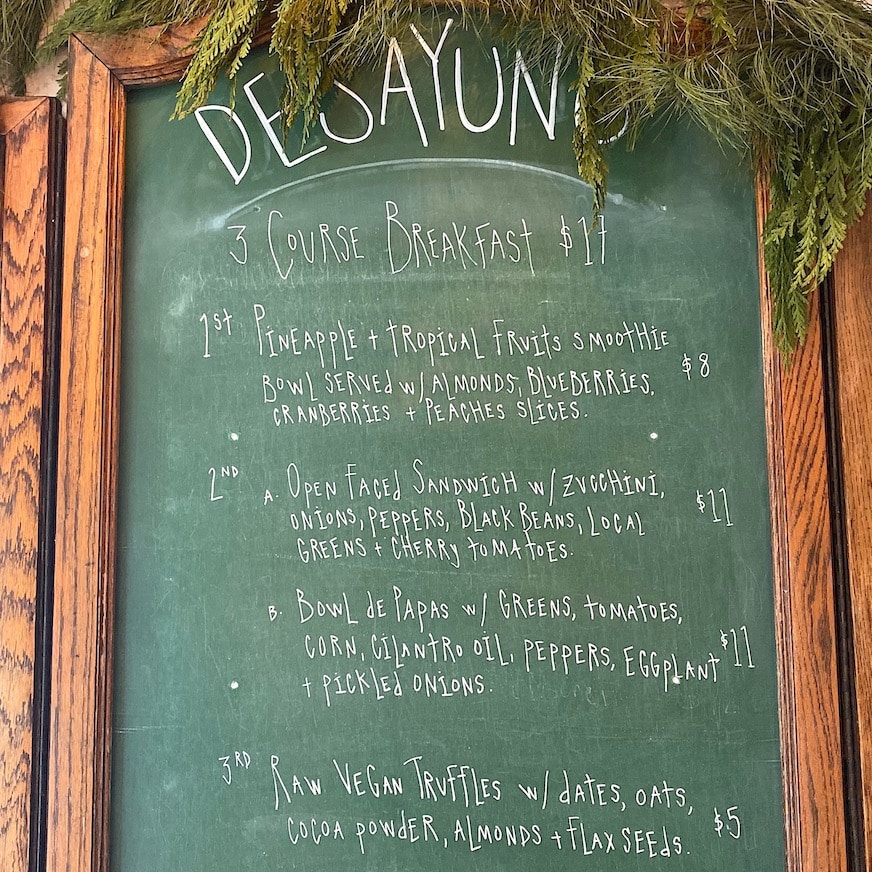 DESAYUNO
3 COURSE BREAKFAST
1st PINEAPPLE + tROPICAL FRUits SMOOtHIE
BOWL SERVED w/ ALMONDS, BLUEBERRIES,
CRANBERRIES + PEACHES SLICES.
$8
2ND A. OPEN FACEd SANDWICH w/ ZUCCHINI,
ONIONS, PEPPERS, BLACK BEANS, LOCAL
GREENS + CHERRY tOMAtOES.
$11
B. BOWL de PAPAS w/ GREENS, tOMAtOES,
CORN, CILANtRO OIL, PEPPERS, EGGPLANt
+ PICKLEd ONIONS.
$11
3RD RAW VEGAN TRUFFLES w/ dAtES, OAtS,
COCOA POWDER, ALMONDS + FLAX SEEds.
$5